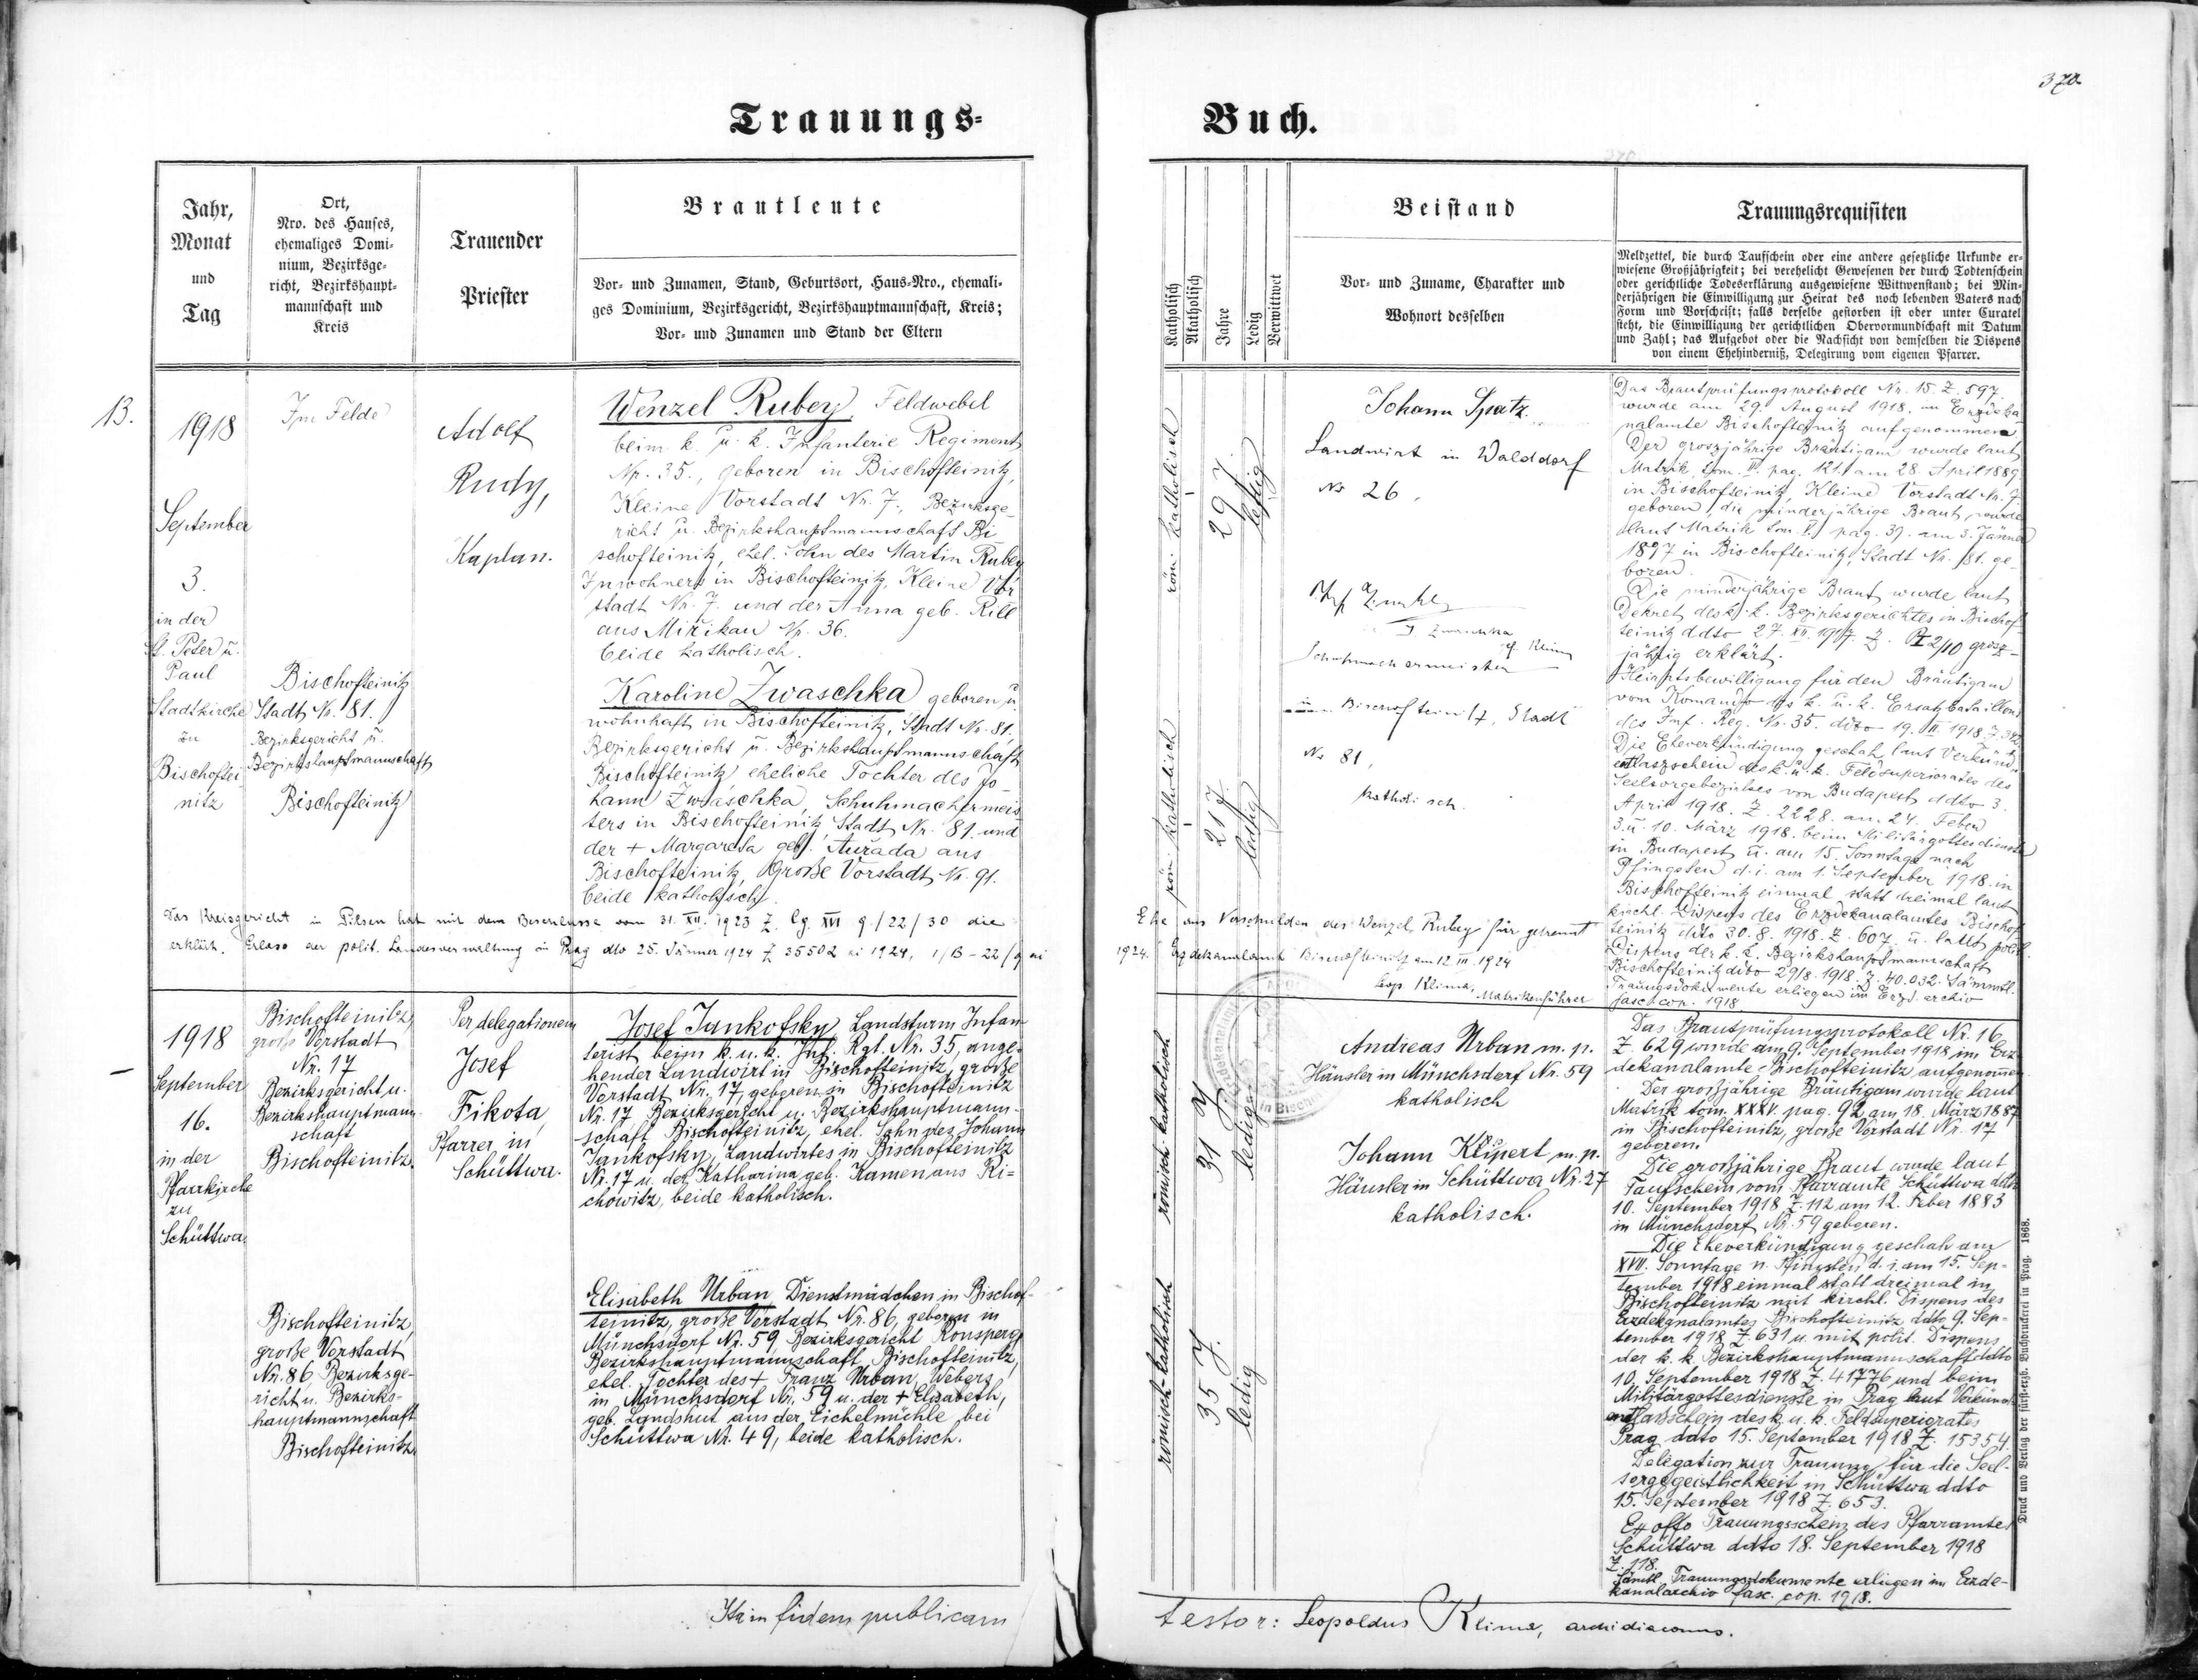 370.
Trauungs-
Buch.
Jahr,
Monat
und
Tag
Ort,
Nro. des Hauses,
ehemaliges Domi-
nium, Bezirksge-
richt, Bezirkshaupt-
mannschaft und
Kreis
Trauender
Priester
Brautleute
Vor- und Zunamen, Stand, Geburtsort, Haus-Nro., ehemali-
ges Dominium, Bezirksgericht, Bezirkshauptmannschaft, Kreis;
Vor- und Zunamen und Stand der Eltern
Katholisch
Akatholisch
Jahre
Ledig
Verwittwet
Beistand
Vor- und Zuname, Charakter und
Wohnort desselben
Trauungsrequisiten
Meldzettel, die durch Taufschein oder eine andere gesetzliche Urkunde er-
wiesene Großjährigkeit; bei verehelicht Gewesenen der durch Todtenschein
oder gerichtliche Todeserklärung ausgewiesene Wittwenstand; bei Min-
derjährigen die Einwilligung zur Heirat des noch lebenden Vaters nach
Form und Vorschrift; falls derselbe gestorben ist oder unter Curatel
steht, die Einwilligung der gerichtlichen Obervormundschaft mit Datum
und Zahl; das Aufgebot oder die Nachsicht von demselben die Dispens
von einem Ehehinderniß, Delegirung vom eigenen Pfarrer.
13.
1918
September
3.
in der
St. Peter u.
Paul
Stadtkirche
zu
Bischoftei
nitz
Im Felde
Bischofteinitz
Stadt Nr. 81.
Bezirksgericht u.
Bezirkshauptmannschaft
Bischofteinitz
Adolf
Rudy,
Kaplan.
Wenzel Rubey, Feldwebel
beim k. u. k. Infanterie Regiment
Nr. 35., geboren in Bischofteinitz,
Kleine Vorstadt Nr. 7., Bezirksge-
richt u. Bezirkshauptmannschaft Bi
schofteinitz, ehel. Sohn des Martin Rubey
Inwohners in Bischofteinitz, Kleine Vor
stadt Nr. 7. und der Anna geb. Rill
aus Mirikau Nr. 36.
beide katholisch.
Karoline Zwaschka geboren u.
wohnhaft in Bischofteinitz, Stadt Nr. 81.
Bezirksgericht u. Bezirkshauptmannschaft
Bischofteinitz eheliche Tochter des Jo-
hann Zwaschka, Schuhmachermeis
ters in Bischofteinitz Stadt Nr. 81. und
der + Margareta geb. Aurada aus
Bischofteinitz, Große Vorstadt Nr. 91.
beide katholisch.
röm. katholisch
29 J.
ledig
röm. katholisch
21 J.
ledig
Johann Spatz
Landwirt in Walddorf
Nr 26.
J. Zwaschka
Schuhmachermeister
in Bischofteinitz, Stadt
Nr 81,
katholisch.
Das Brautprüfungsprotokoll Nr. 15. Z. 597.
wurde am 29. August 1918. im Erzdeka
nalamte Bischofteinitz aufgenommen
Der groszjährige Bräutigam wurde laut
Matrik tom. pag. 121. am 28. April 1889
in Bischofteinitz, Kleine Vorstadt Nr. 7
geboren, die minderjährige Braut wurde
laut Matrik tom. V. pag. 39. am 3. Jänner
1897 in Bischofteinitz, Stadt Nr. 81. ge-
boren.
Die minderjährige Braut wurde laut
Dekret des k. k. Bezirksgerichtes in Bischof-
teinitz ddto 27. XII. 1917. Z. P 2/10 grosz-
jährig erklärt.
Heiratsbewilligung für den Bräutigam
vom Komando des k. u. k. Ersatzbataillons
des Inf. Reg. Nr. 35. ddto 19. 1918.
Die Eheverkündigung geschah laut Verkünd-
entlaszschein des k. u. k. Feldsuperiorates des
Seelsorgebezirkes von Budapest ddto 3.
April 1918. Z. 2228. am 24. Feber
3. u. 10. März 1918. beim Militärgottesdienste
in Budapest u. am 15. Sonntage nach
Pfingsten d. i. am 1. September 1918. in
Bischofteinitz einmal statt dreimal laut
kirchl. Dispens des Erzdekanalamtes Bischof
teinitz ddto 30. 8. 1918. Z. 607. u. laut polit.
Dispens der k. k. Bezirkshauptmannschaft
Bischofteinitz ddto 29/8. 1918. Z. 40.032. Sämmtl.
Trauungsdokumente erliegen im Erzd. archiv
fasc. cop. 1918
Das Kreisgericht in Pilsen hat mit dem Beschlusse vom 31. XII. 1923 Z. Cg. XVI 9/22/30 die Ehe aus Verschulden des Wenzel Rubey für getrennt
erklärt. Erlass der polit. Landesverwaltung in Prag dto 25. Jänner 1924 Z 35502 ai 1924, 1/B-22/9 ai 1924. Erzdekanalamt Bischofteinitz am 12. III. 1924
Leop. Klima,
Matrikenführer
1918
September
16.
in der
Pfarrkirche
zu
Schüttwa.
Bischofteinitz,
große Vorstadt
Nr. 17
Bezirksgericht u.
Bezirkshauptmann-
schaft
Bischofteinitz.
Bischofteinitz,
große Vorstadt
Nr. 86 Bezirksge-
richt u. Bezirks-
hauptmannschaft
Bischofteinitz
Per delegationem
Josef
Fikota,
Pfarrer in
Schüttwa.
Josef Jankofsky, Landsturm Infan
terist beim k. u. k. Inf. Rgt. Nr. 35, ange-
hender Landwirt in Bischofteinitz, große
Vorstadt Nr. 17, geboren in Bischofteinitz
Nr. 17 Bezirksgericht u. Bezirkshauptmann-
schaft Bischofteinitz, ehel. Sohn des Johann
Jankofsky, Landwirtes in Bischofteinitz
Nr. 17 u. der Katharina geb. Kamen aus Ri-
chowitz, beide katholisch.
Elisabeth Urban, Dienstmädchen in Bischof-
teinitz, große Vorstadt Nr. 86, geboren in
Münchsdorf Nr. 59, Bezirksgericht Ronsperg,
Bezirkshauptmannschaft Bischofteinitz,
ehel. Tochter des + Franz Urban, Webers
in Münchsdorf Nr. 59 u. der + Elisabeth,
geb. Landshut aus der Eichelmühle bei
Schüttwa Nr. 49, beide katholisch.
römisch-katholisch
31 J.
ledig
römisch-katholisch
35 J.
ledig
Andreas Urban m. p.
Häusler in Münchsdorf Nr. 59
katholisch
Johann Klipert m. p.
Häusler in Schüttwa Nr. 27
katholisch.
Das Brautprüfungsprotokoll Nr. 16
Z. 629 wurde am 9. September 1918 im Erz-
dekanalamte Bischofteinitz aufgenommen
Der großjährige Bräutigam wurde laut
Matrik tom. XXXV. pag. 92 am 18. März 1887
in Bischofteinitz, große Vorstadt Nr. 17
geboren.
Die großjährige Braut wurde laut
Taufschein vom Pfarramte Schüttwa ddto
10. September 1918 Z. 112 am 12. Feber 1883
in Münchsdorf Nr. 59 geboren.
Die Eheverkündigung geschah am
XVII. Sonntage n. Pfingsten d. i. am 15. Sep-
tember 1918 einmal statt dreimal in
Bischofteinitz mit kirchl. Dispens des
Erzdekanalamtes Bischofteinitz ddto 9. Sep-
tember 1918 Z. 631 u. mit polit. Dispens
der k. k. Bezirkshauptmannschaft ddto
10. September 1918 Z. 41776 und beim
Militärgottesdienste in Prag laut Verkünd-
entlaßschein des k. u. k. Feldsuperiorates
Prag ddto 15. September 1918 Z. 15354.
Delegation zur Trauung für die Seel-
sorgegeistlichkeit in Schüttwa ddto
15. September 1918 Z. 653.
Ex offo Trauungsschein des Pfarramtes
Schüttwa ddto 18. September 1918
Z. 118.
Sämtl. Trauungsdokumente erliegen im Erzde-
kanalarchiv fasc. cop. 1918.
Druck und Verlag der fürst-erzb. Buchdruckerei in Prag. 1868.
Ita in fidem publicam
testor: Leopoldus Klima, archidiaconus.